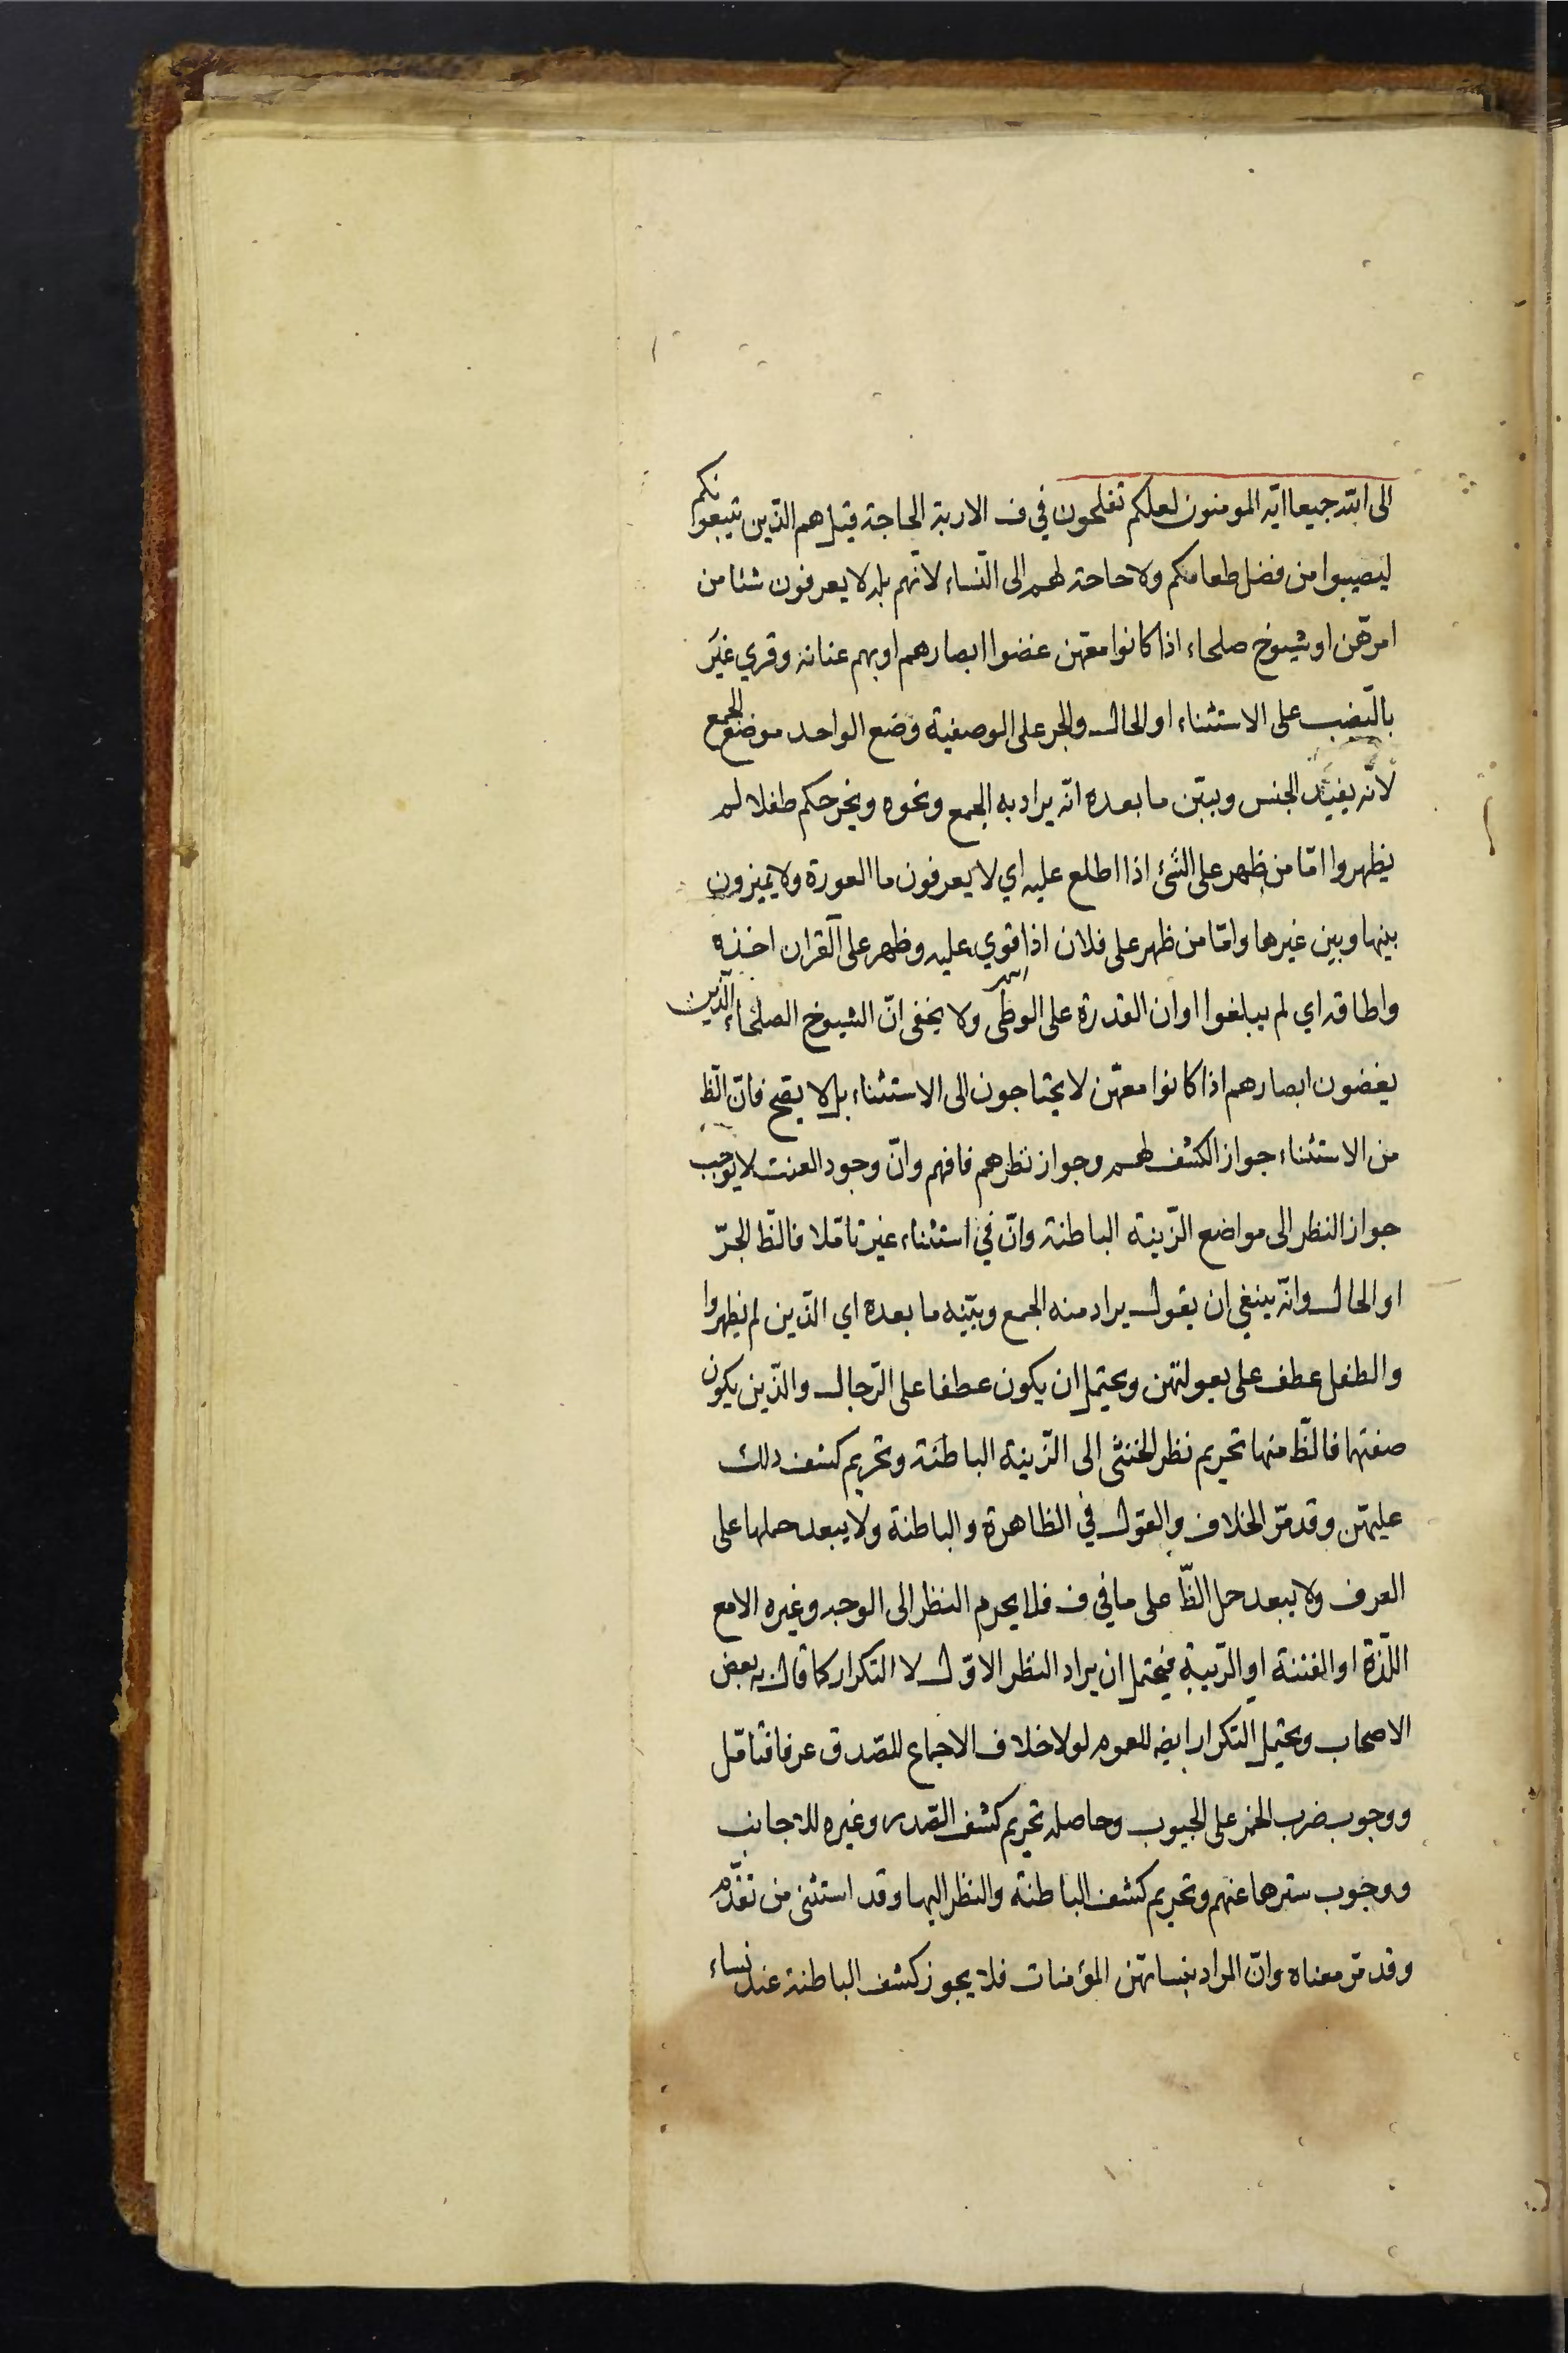 الى الله جميعا ايه المومنون لعلكم تفلحون في ف الاربة الحاجة قيل هم الذين يتبعونكم
ليصيبوا من فضل طعامكم ولا حاجة لهم الى النساء لانهم بله لا يعرفون شئا من
امرهن او شيوخ صلحاء اذا كانوا معهن غضوا ابصارهم او بهم عنانة وقري غير
بالنصب على الاستثناء او الحال والجر على الوصفية وضع الواحد موضع الجمع
لانه يفيد الجنس ويبين ما بعده انه يراد به الجمع ونحوه ويخرجكم طفلا لم
يظهروا اما من ظهر على الشئ اذا اطلع عليه اي لا يعرفون ما العورة ولا يميزون
بينها وبين غيرها واما من ظهر على فلان اذا قوي عليه وظهر على القران اخذه
واطاقه اي لم يبلغوا اوان القدرة على الوطى ولا يخفى ان الشيوخ الصلحاء الذين
يغضون ابصارهم اذا كانوا معهن لا يحتاجون الى الاستثناء بل لا يصح فان الظ
من الاستثناء جواز الكشف لهم وجواز نظرهم فافهم وان وجود العنت لا يوجب
جواز النظر الى مواضع الزينة الباطنة وان في استثناء غير تاملا فالظ الجر
او الحال وانه ينبغي ان يقول يراد منه الجمع ويبينه ما بعده اي الذين لم يظهروا
والطفل عطف على بعولتهن ويحتمل ان يكون عطفا على الرجال والذين يكون
صفتها فالظ منها تحريم نظر الخنثى الى الزينة الباطنة وتحريم كشف ذلك
عليهن وقد مر الخلاف والقول في الظاهرة والباطنة ولا يبعد حملها على
العرف ولا يبعد حمل الظ على ما في ف فلا يحرم النظر الى الوجه وغيره الا مع
اللذة او الفتنة او الريبة فيحتمل ان يراد النظر الاول لا التكرار كما قال به بعض
الاصحاب ويحتمل التكرار ايضه للعموم لولا خلاف الاجماع للصدق عرفا فتامل
ووجوب ضرب الخمر على الجيوب وحاصله تحريم كشف الصدر وغيره للاجانب
ووجوب سترها عنهم وتحريم كشف الباطنة والنظر اليها وقد استثنى من تقدم
وقد مر معناه وان المراد بنسائهن المؤمنات فلا يجوز كشف الباطنة عند نساء